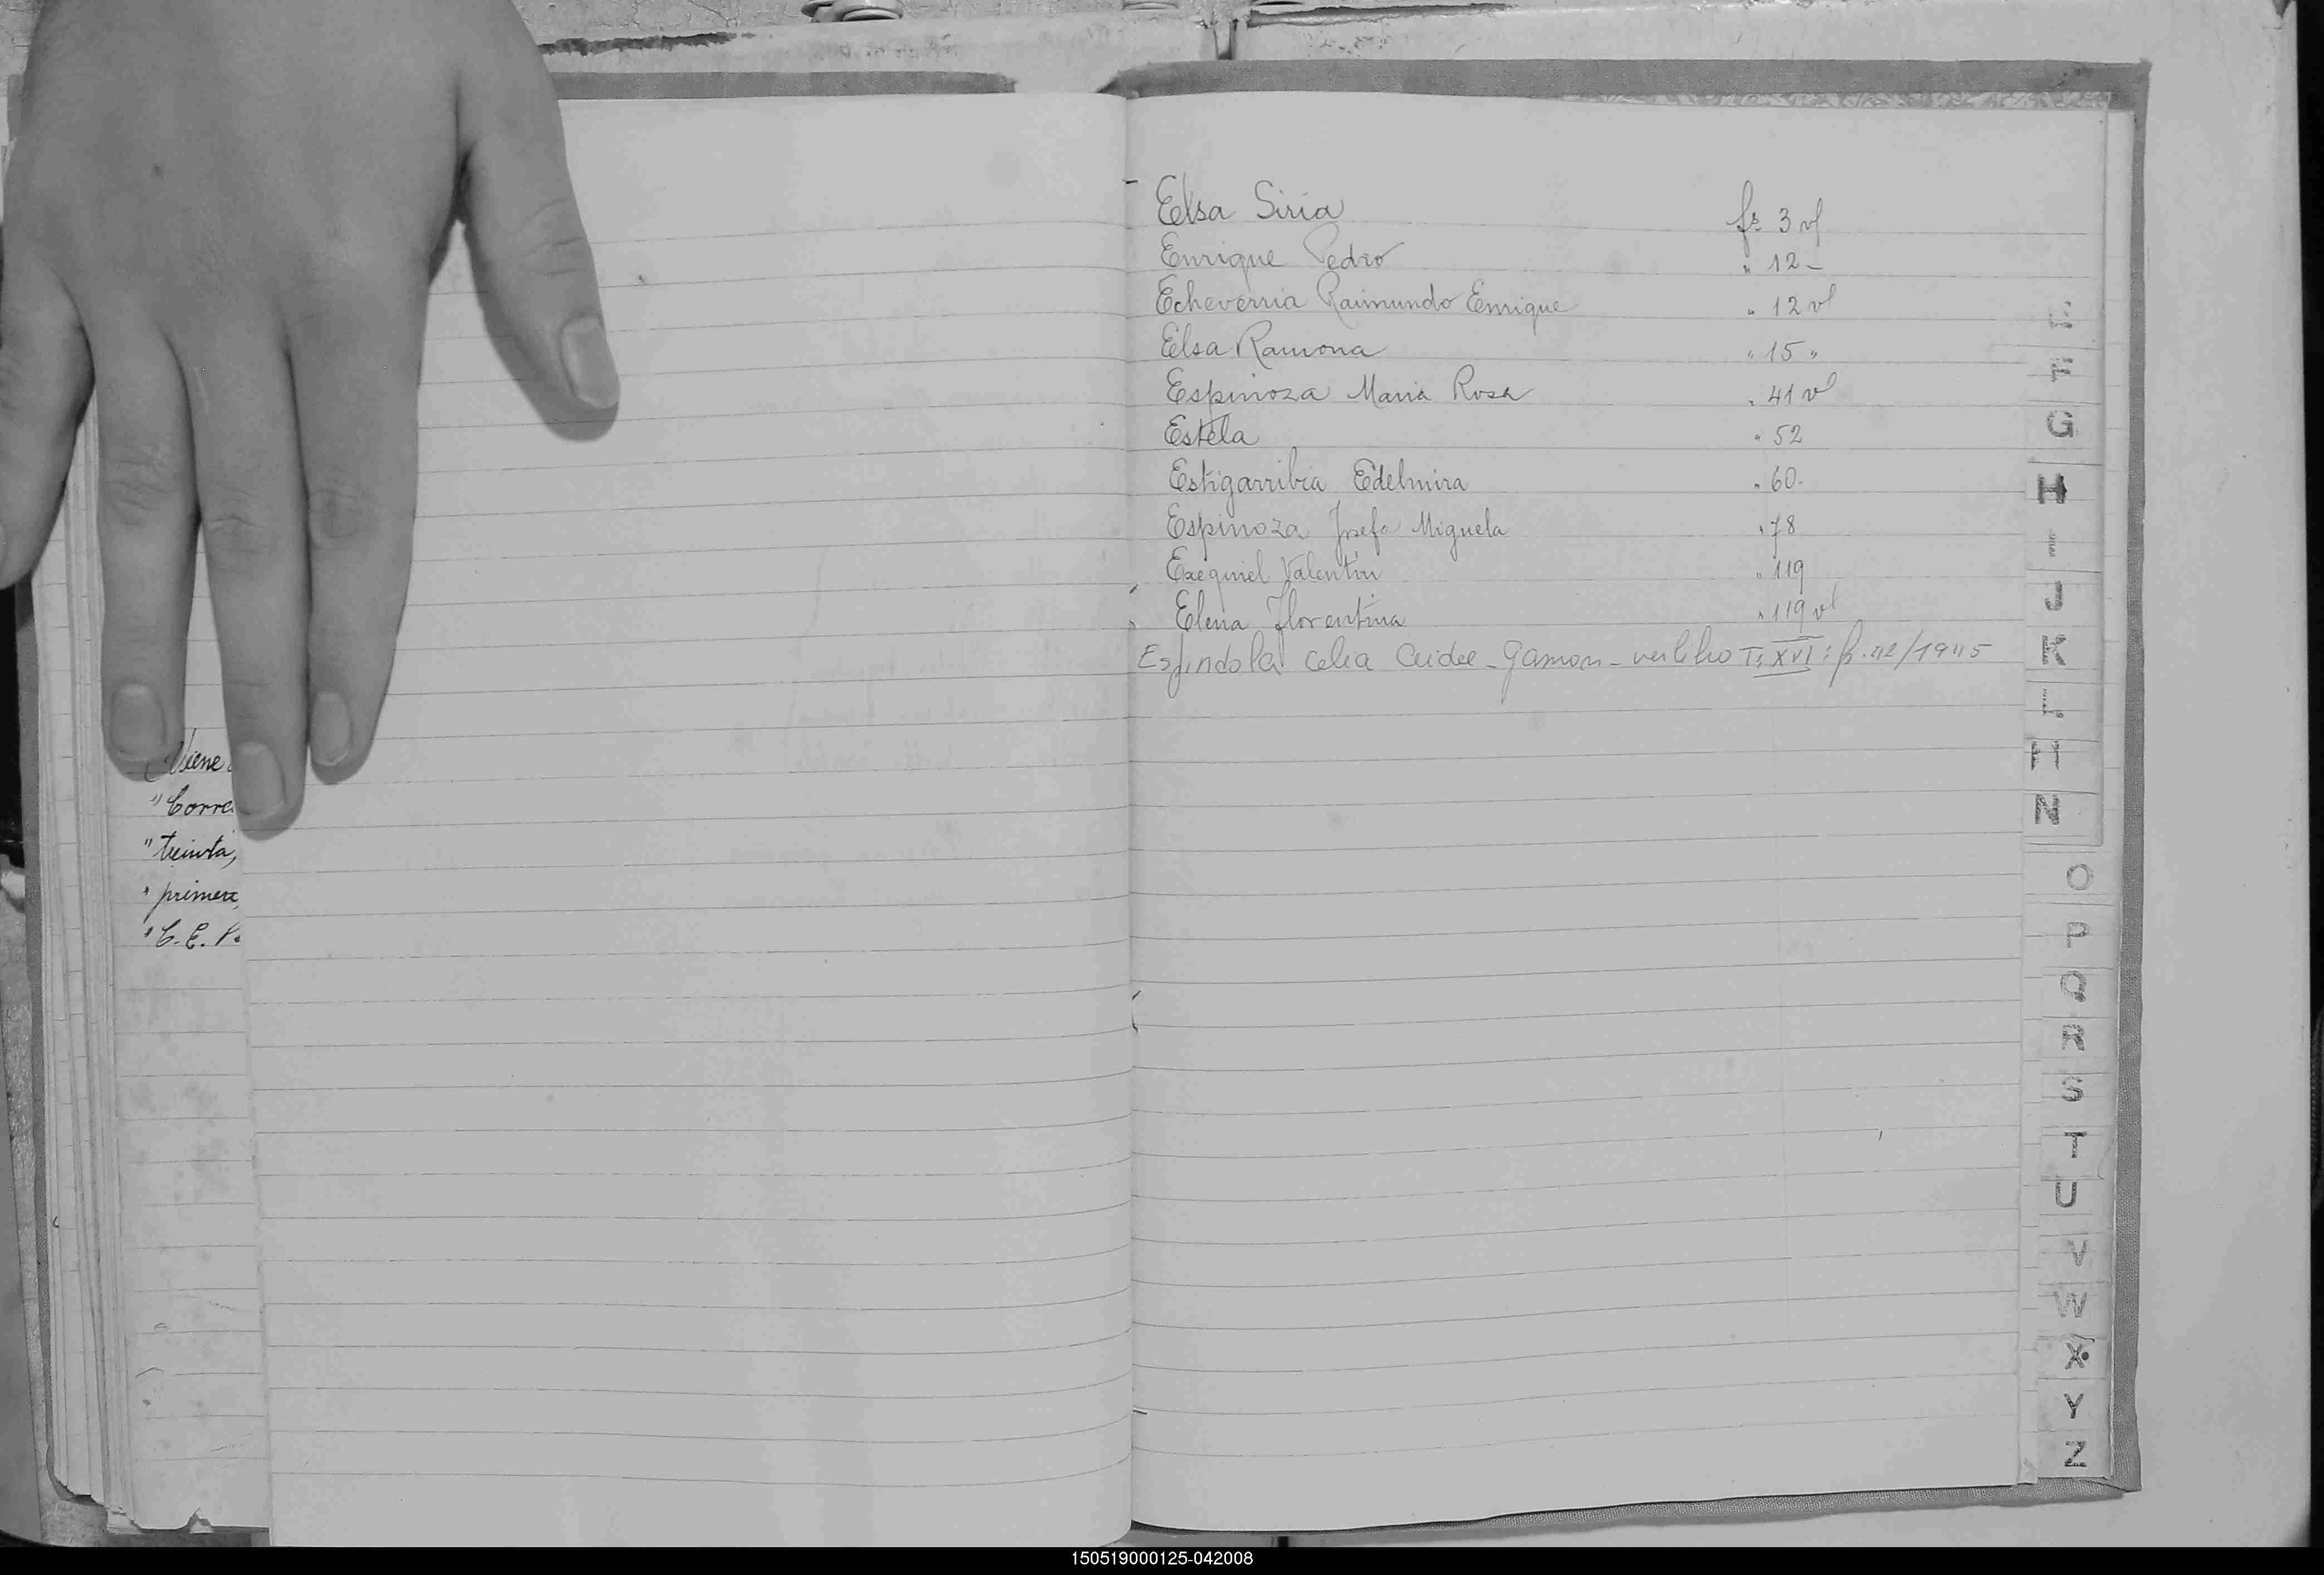 Viene
"Corre
"treinta,
" primera
"C. E. P
Elsa Siria fs 3 vl
Enrique Pedro " 12 -
Echeverria Raimundo Enrique " 12 vl
Elsa Ramona " 15 "
Espinoza Maria Rosa " 41 vl
Estela " 52
Estigarribia Edelmira " 60.
Espinoza Josefa Miguela " 78
Exequiel Valentin " 119
Elena Florentina " 119 vl
Espindola Celia - Gamon - T: XVI:
G
H
I
J
K
L
M
N
O
P
Q
R
S
T
U
V
W
X
Y
Z
150519000125-042008